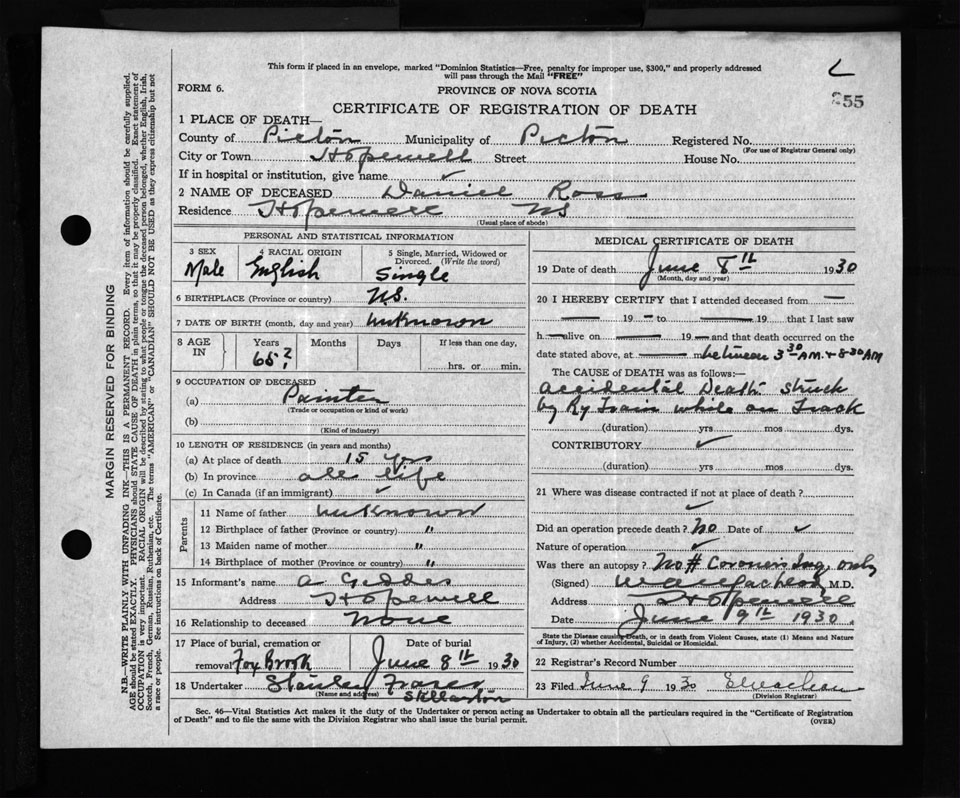 This form if placed in an envelope, marked "Dominion Statistics—Free, penalty for improper use, $300," and properly addressed
will pass through the Mail "FREE"
FORM 6.
PROVINCE OF NOVA SCOTIA
255
CERTIFICATE OF REGISTRATION OF DEATH
1 PLACE OF DEATH—
County of Pictou Municipality of Pictou Registered No.
(For use of Registrar General only)
City or Town Hopewell Street House No.
If in hospital or institution, give name ✓
2 NAME OF DECEASED Daniel Ross
Residence Hopewell NS
(Usual place of abode)
PERSONAL AND STATISTICAL INFORMATION
3 SEX 4 RACIAL ORIGIN 5 Single, Married, Widowed or
Divorced. (Write the word)
Male English Single
6 BIRTHPLACE (Province or country) N.S.
7 DATE OF BIRTH (month, day and year) unknown
8 AGE IN Years Months Days If less than one day,
65? hrs. or min.
9 OCCUPATION OF DECEASED
(a) Painter
(Trade or occupation or kind of work)
(b)
(Kind of industry)
10 LENGTH OF RESIDENCE (in years and months)
(a) At place of death 15 yrs
(b) In province all life
(c) In Canada (if an immigrant) ✓
Parents
11 Name of father unknown
12 Birthplace of father (Province or country) "
13 Maiden name of mother "
14 Birthplace of mother (Province or country) "
15 Informant's name A Geddes
Address Hopewell
16 Relationship to deceased None
17 Place of burial, cremation or Date of burial
removal Fox Brook June 8th 1930
18 Undertaker Stanley Fraser
(Name and address) Stellarton
MEDICAL CERTIFICATE OF DEATH
19 Date of death June 8th 1930
(Month, day and year)
20 I HEREBY CERTIFY that I attended deceased from —
— 19 — to — 19 that I last saw
h — alive on — 19 — and that death occurred on the
date stated above, at — m between 3 30 A.M. + 8-30 AM
The CAUSE OF DEATH was as follows:—
Accidental Death. Struck
by Ry Train while on Track
(duration) yrs mos dys.
CONTRIBUTORY ✓
(duration) yrs mos dys.
21 Where was disease contracted if not at place of death?
✓
Did an operation precede death? No Date of ✓
Nature of operation ✓
Was there an autopsy? No # Coroners Inq. only
(Signed) M.D.
Address Hopewell
Date June 9th 1930
State the Disease causing Death, or in death from Violent Causes, state (1) Means and Nature
of Injury, (2) whether Accidental, Suicidal or Homicidal.
22 Registrar's Record Number
23 Filed June 9 1930
(Division Registrar)
Sec. 46—Vital Statistics Act makes it the duty of the Undertaker or person acting as Undertaker to obtain all the particulars required in the "Certificate of Registration
of Death" and to file the same with the Division Registrar who shall issue the burial permit.
(OVER)
MARGIN RESERVED FOR BINDING
N.B—WRITE PLAINLY WITH UNFADING INK—THIS IS A PERMANENT RECORD. Every item of information should be carefully supplied.
AGE should be stated EXACTLY. PHYSICIANS should STATE CAUSE OF DEATH in plain terms, so that it may be properly classified. Exact statement of
OCCUPATION is very important. RACIAL ORIGIN will be described by stating to what people or tongue the deceased person belonged, whether English, Irish,
Scotch, French, German, Russian, Ruthenian, etc. The terms "AMERICAN" or "CANADIAN" SHOULD NOT BE USED as they express citizenship but not
a race or people. See instructions on back of Certificate.